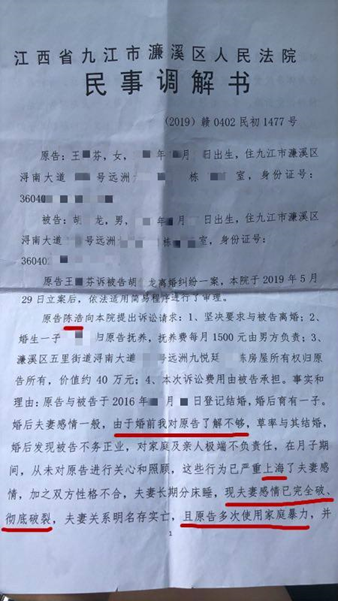 江西省九江市濂溪区人民法院
民事调解书
(2019)赣0402民初1477号
原告:王 芬,女, 年 月 日出生,住九江市濂溪区
浔南大道 号远洲 栋 室,身份证号:
36040
被告:胡 龙,男, 年 月 日出生,住九江市濂溪区
浔南大道 号远洲 栋 室,身份证号:
36040
原告王 芬诉被告胡 龙离婚纠纷一案,本院于2019年5月
29日立案后,依法适用简易程序进行了审理。
原告陈浩向本院提出诉讼请求:1、坚决要求与被告离婚;2、
婚生一子 归原告抚养,抚养费每月1500元由男方负责;3、
濂溪区五里街道浔南大道 号远洲九悦廷 东房屋所有权归原
告所有,价值约40万元;4、本次诉讼费用由被告承担。事实和
理由:原告与被告于2016年 月 日登记结婚,婚后育有一子。
婚后夫妻感情一般,由于婚前我对原告了解不够,草率与其结婚,
婚后发现被告不务正业,对家庭及亲人极端不负责任,在月子期
间,从未对原告进行关心和照顾,这些行为已严重上海了夫妻感
情,加之双方性格不合,夫妻长期分床睡,现夫妻感情已完全破、
彻底破裂,夫妻关系明名存实亡,且原告多次使用家庭暴力,并
1